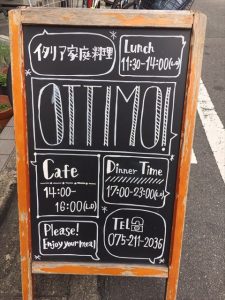 イタリア家庭料理
Lunch
11:30-14:00(L.O)
OTTIMO!
Cafe
14:00-
16:00(L.O)
Dinner Time
17:00-23:00(L.O)
Please!
Enjoy your meal
TEL
075-211-2036